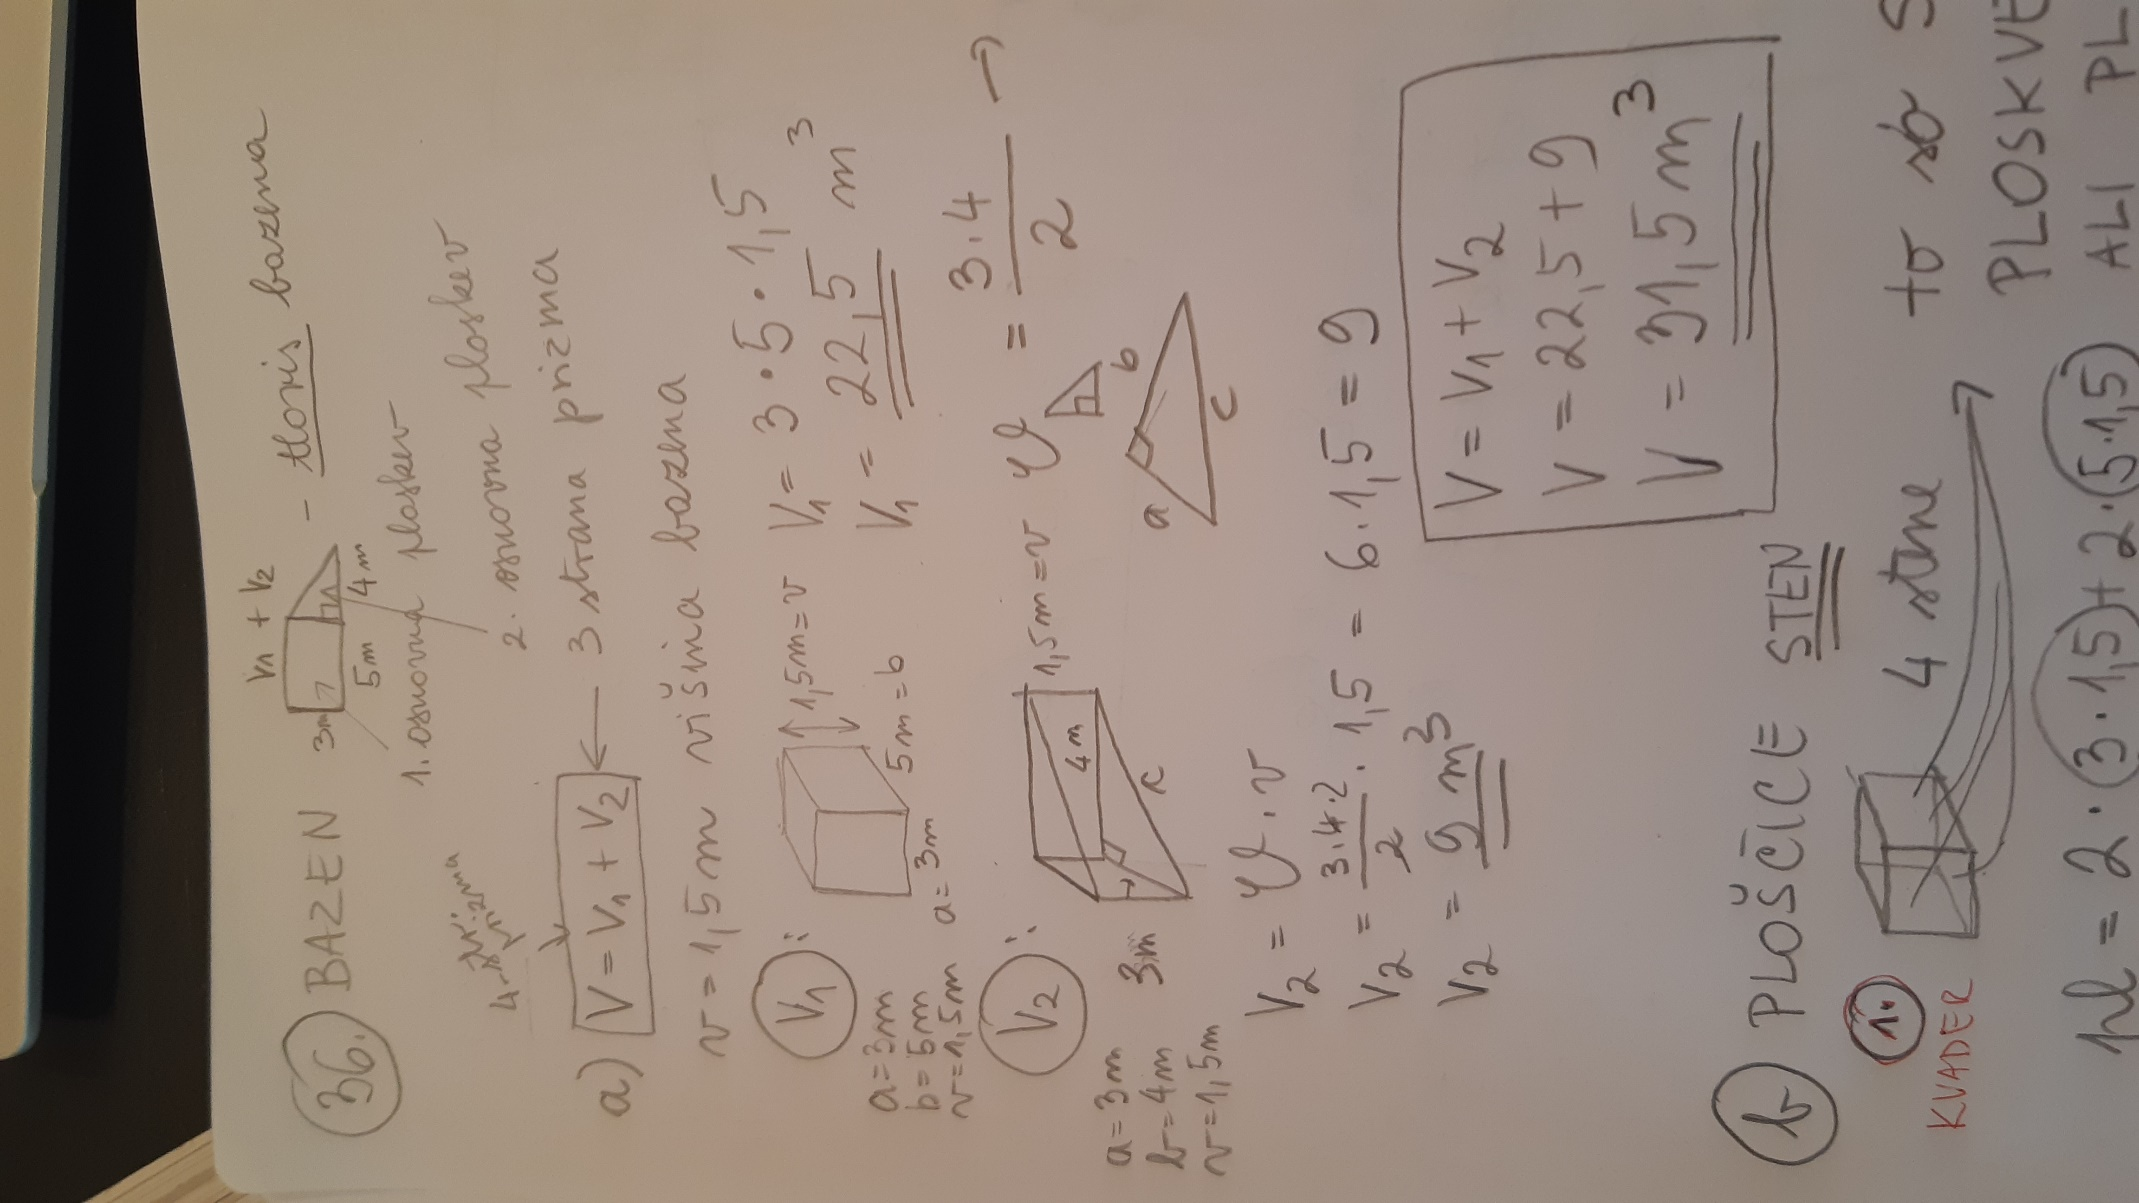 36. BAZEN
V1 + V2
3m
5m
4m
- tloris bazena
1. osnovna ploskev
2. osnovna ploskev
a) V = V1 + V2 ← 3 strana prizma
v = 1,5m višina bazena
V1:
1,5m=v
5m=b
a=3m
a=3m
b=5m
v=1,5m
V1 = 3·5·1,5
V1 = 22,5 m³
V2:
3m
4m
c
1,5m=v
a=3m
b=4m
v=1,5m
= 3·4/2 →
b
a
b
c
V2 = · v
V2 = 3·4·2/2 · 1,5 = 6·1,5 = 9
V2 = 9 m³
V = V1 + V2
V = 22,5 + 9
V = 31,5 m³
b PLOŠČICE STEN
1.
KVADER
4 stene
to so S
PLOSKVE
pl = 2·(3·1,5)+2·(5·1,5) ALI PL